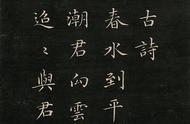 古詩
春水到平
潮君向雲
迢々與君